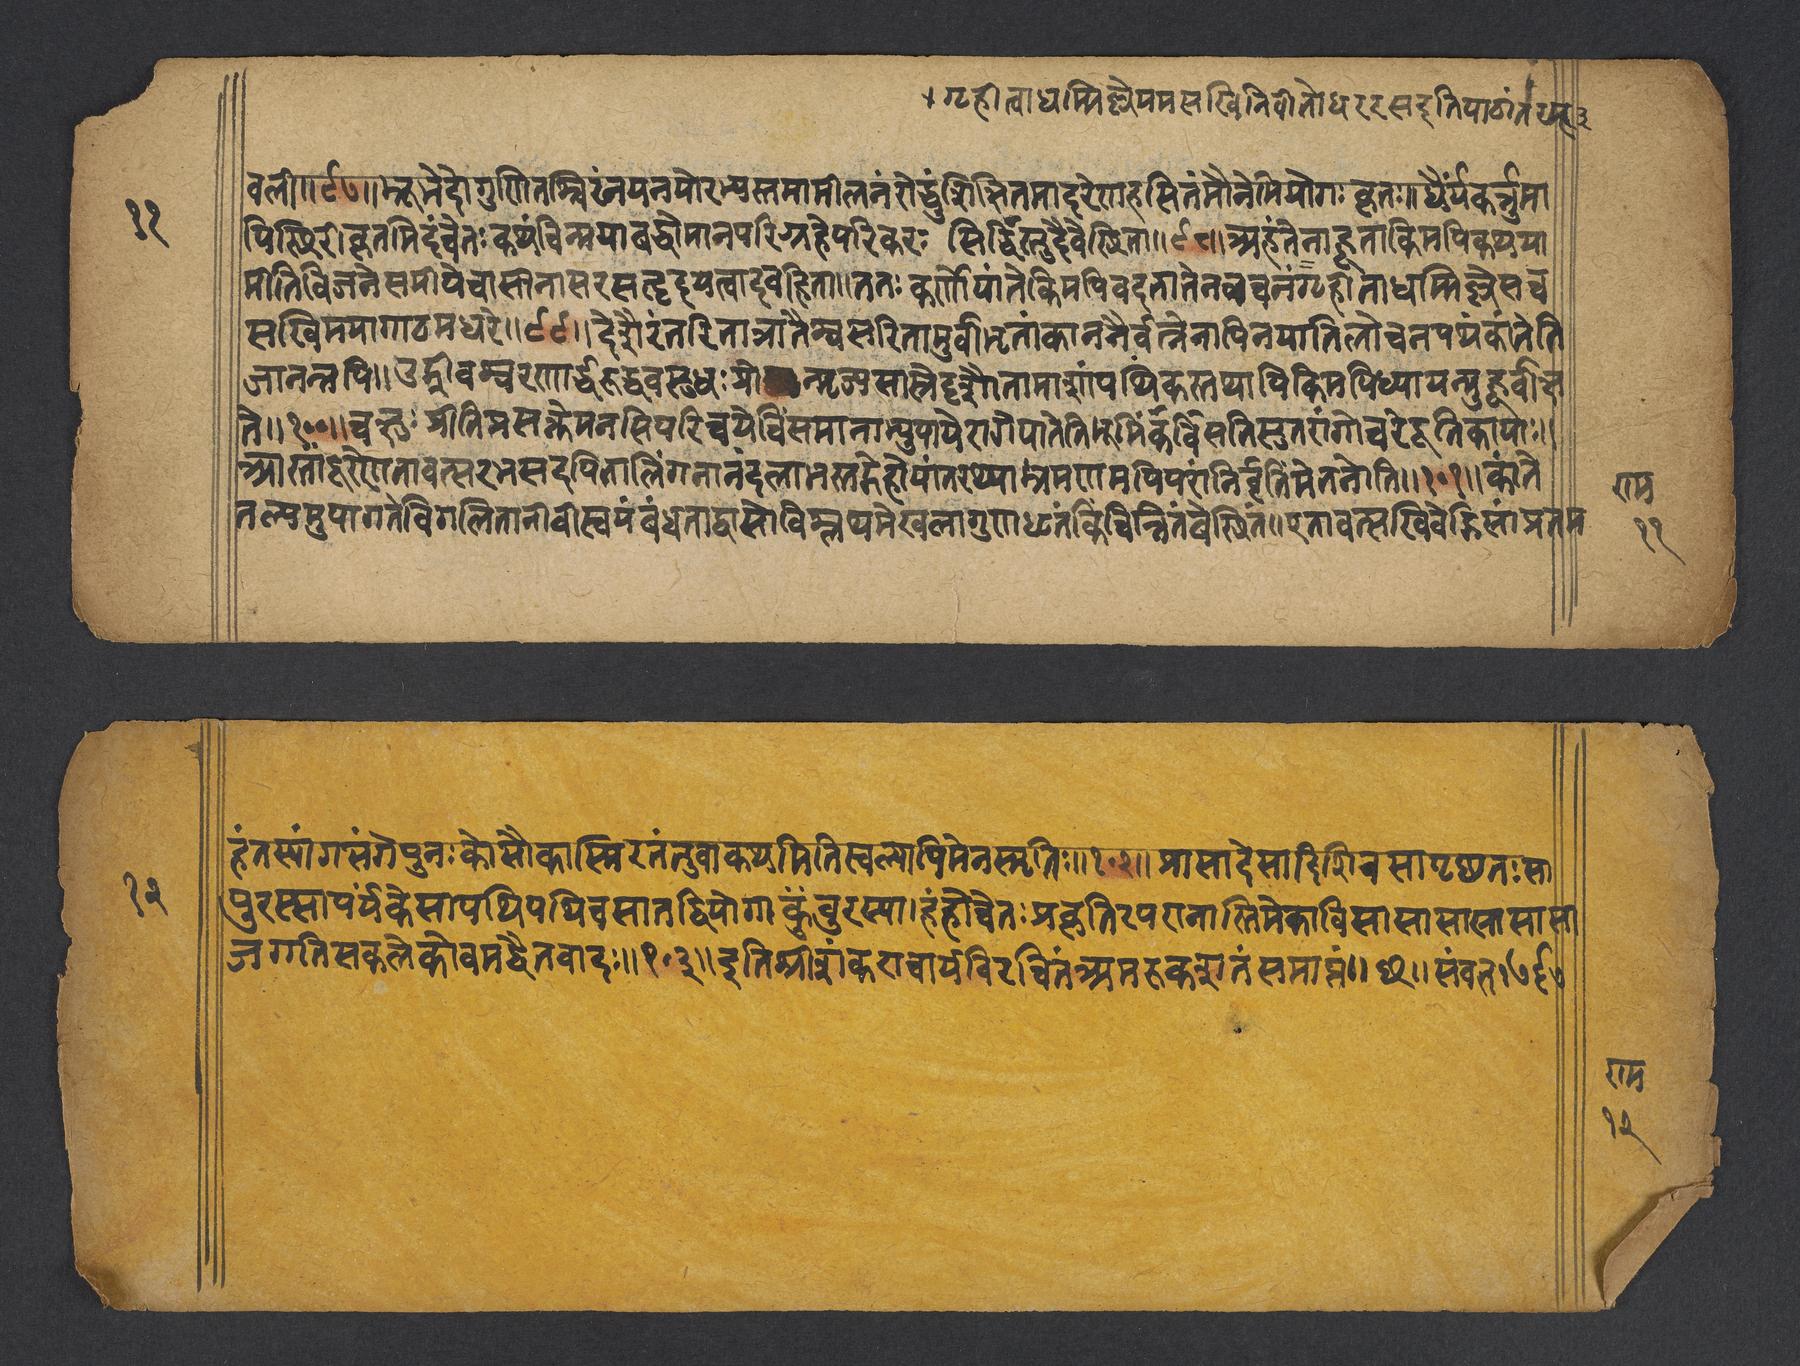 ४ गृहीत्वाधम्मिल्लंममसखिनिपीतोधररसइतिपाठांतरं ३
११
वली॥९७॥भ्रूभेदोगुणितश्चिरंनयनयोरभ्यस्तमामीलनंरोद्धुंशिक्षितमादरेणहसितंमौनेभियोगःकृतः॥धैर्यंकर्त्तुमा
पिस्थिरीकृतमिदंचेतःकथंचिन्मयाबद्धोमानपरिग्रहेपरिकरः सिद्धिस्तुदैवेस्थिता॥९८॥अहंतेनाहूताकिमपिकथया
मीतिविजनेसमीपेचासीनासरसहृदयत्वादवहिता॥ततःकर्णोपांतेकिमपिवदतातेनवचनंगृहीताधम्मिल्लेसच
सखिमयागाठमधरे॥९९॥देशैरंतरिताशतैश्चसरितामुर्वीभृतांकाननैर्यत्नेनापिनयातिलोचनपथंकांतेति
जानन्नपि॥उद्ग्रीवश्चरणार्द्धरुद्धवसुधःप्रोन्मृज्यसास्रेदृशौतामाशांपथिकस्तथापिकिमपिध्यायन्मुहूर्वीक्ष
ते॥१००॥चक्षुःप्रीतिप्रसक्तेमनसिपरिचये सुतरांगोचरेदूतिकायाः॥
आस्तांदूरेणतावत्सरभसदयितालिंगनानंदलाभस्तद्गेहोपांतरथ्याभ्रमणमपिपरांनिर्वृतिंमेतनोति॥१०१॥कांते
तल्पमुपागतेविगलितानीवीस्वयंबंधनाद्वासोविश्लथमेखलागुणधृतंकिंचिन्नितंबेस्थितं॥एतावत्सखिवेद्मिसांप्रतम
राम
११
१२
हंतस्यांगसंगेपुनःकोसौकास्मिरतंनुवाकथमितिस्वल्पापिमेनस्मृतिः॥१०२॥प्रासादेसादिशिचसापृष्ठतःसा
पुरस्सापर्यंकेसापथिपथिचसातद्वियोगाकुंचुरस्या।हंहोचेतःप्रकृतिरपरानास्तिमेकापिसासासासासासा
जगतिसकलेकोयमद्वैतवादः॥१०३॥इतिश्रीशंकराचार्यविरचितंअमरुकशतंसमाप्तं॥छ॥संवत्१७९७
राम
१२